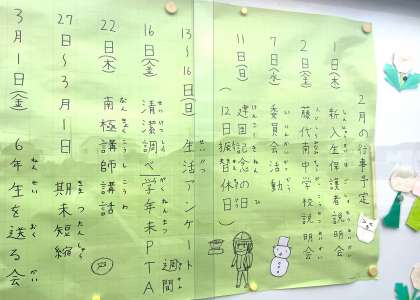 2月の行事予定
1日(木) 新入生保護者説明会
2日(金) 藤代南中学校説明会
7日(水) 委員会活動
11日(日) 建国記念の日
(12日振替休日)
13〜16日(日) 生活アンケート週間
16日(金) 清潔調べ 学年末PTA
22日(木) 南極講師講話
27日〜3月1日 期末短縮
3月1日(金) 6年生を送る会